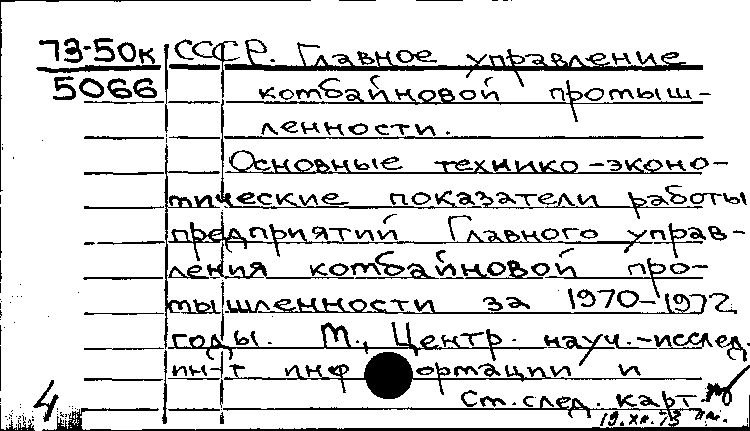 73-50к СССР. Главное управление
5066 комбайновой промыш-
ленности.
Основные технико-эконо-
мические показатели работы
предприятий Главного управ-
ления комбайновой про-
мышленности за 1970-1972
годы. М., Центр. науч.-исслед.
ин-т информации и
См. след. карт.
4 19.XII.73